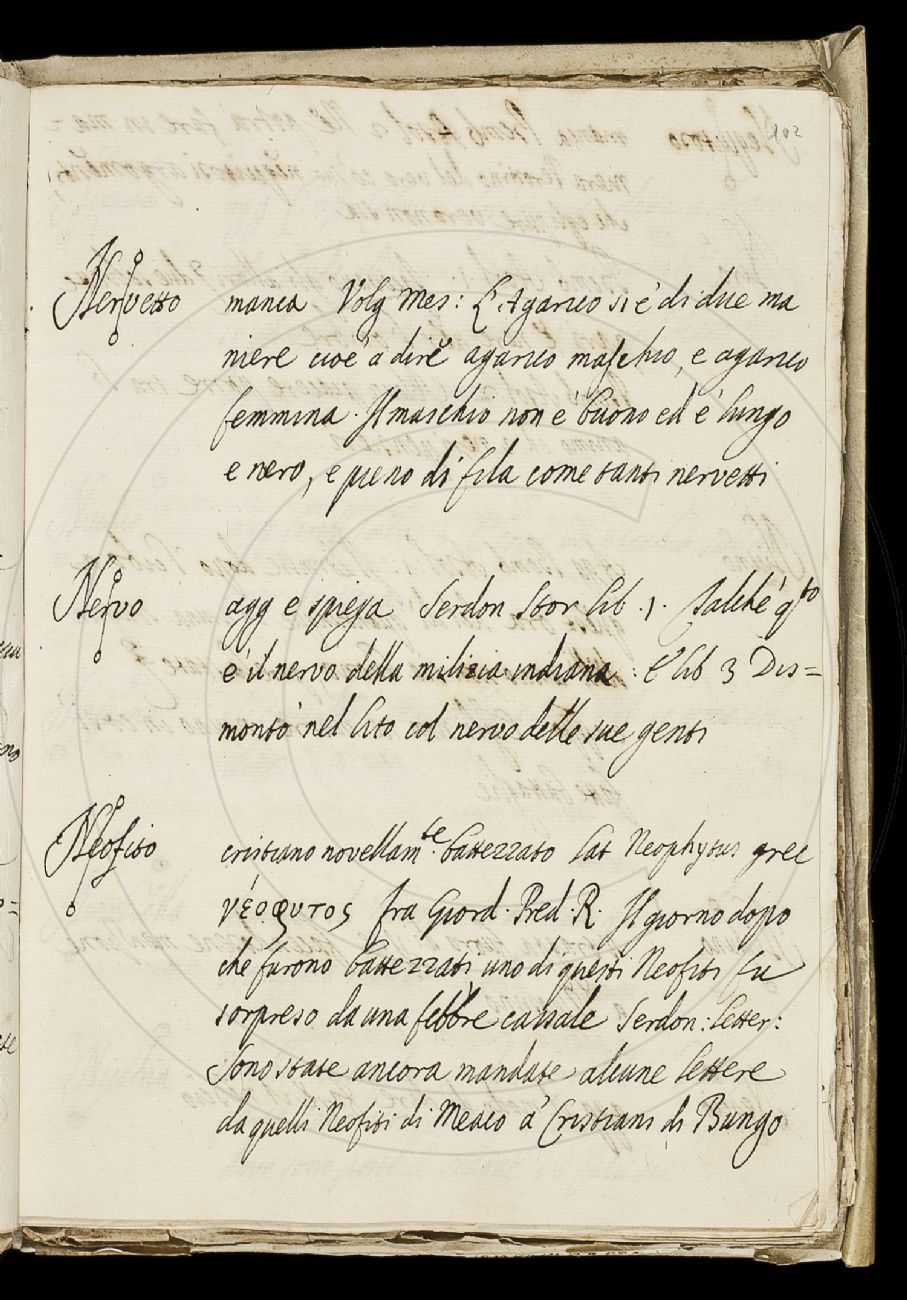 102
Nervetto manca Volg Mes: L'Agarico si é di due ma
niere cioé á dire agarico maschio, e agarico
femmina. Il maschio non é buono ed é lungo
e nero, e pieno di fila come tanti nervetti
Nervo agg e spiega Serdon Stor lib. 1. Talché q.to
é il nervo della milizia indiana. E lib 3 Dis=
montó nel lito col nervo delle sue genti
Neofito cristiano novellam.te battezzato lat Neophytus grec
νέοφυτος fra Giord. Pred. R. Il giorno dopo
che furono battezzati, uno di questi Neofiti fu
sorpreso da una febbre causale Serdon: letter:
Sono state ancora mandate alcune lettere
da quelli Neofiti di Meaco á Cristiani di Bungo